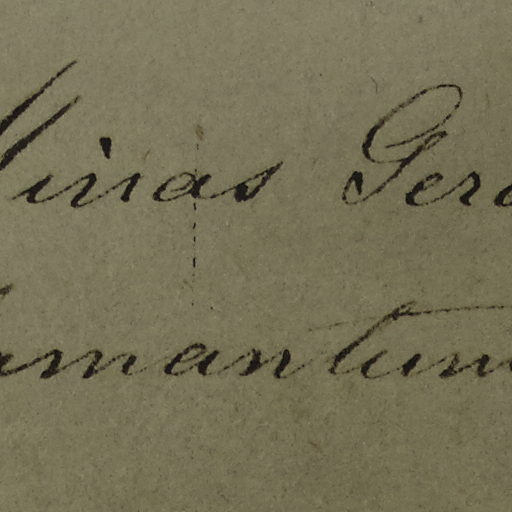 Minas Gera
amantum